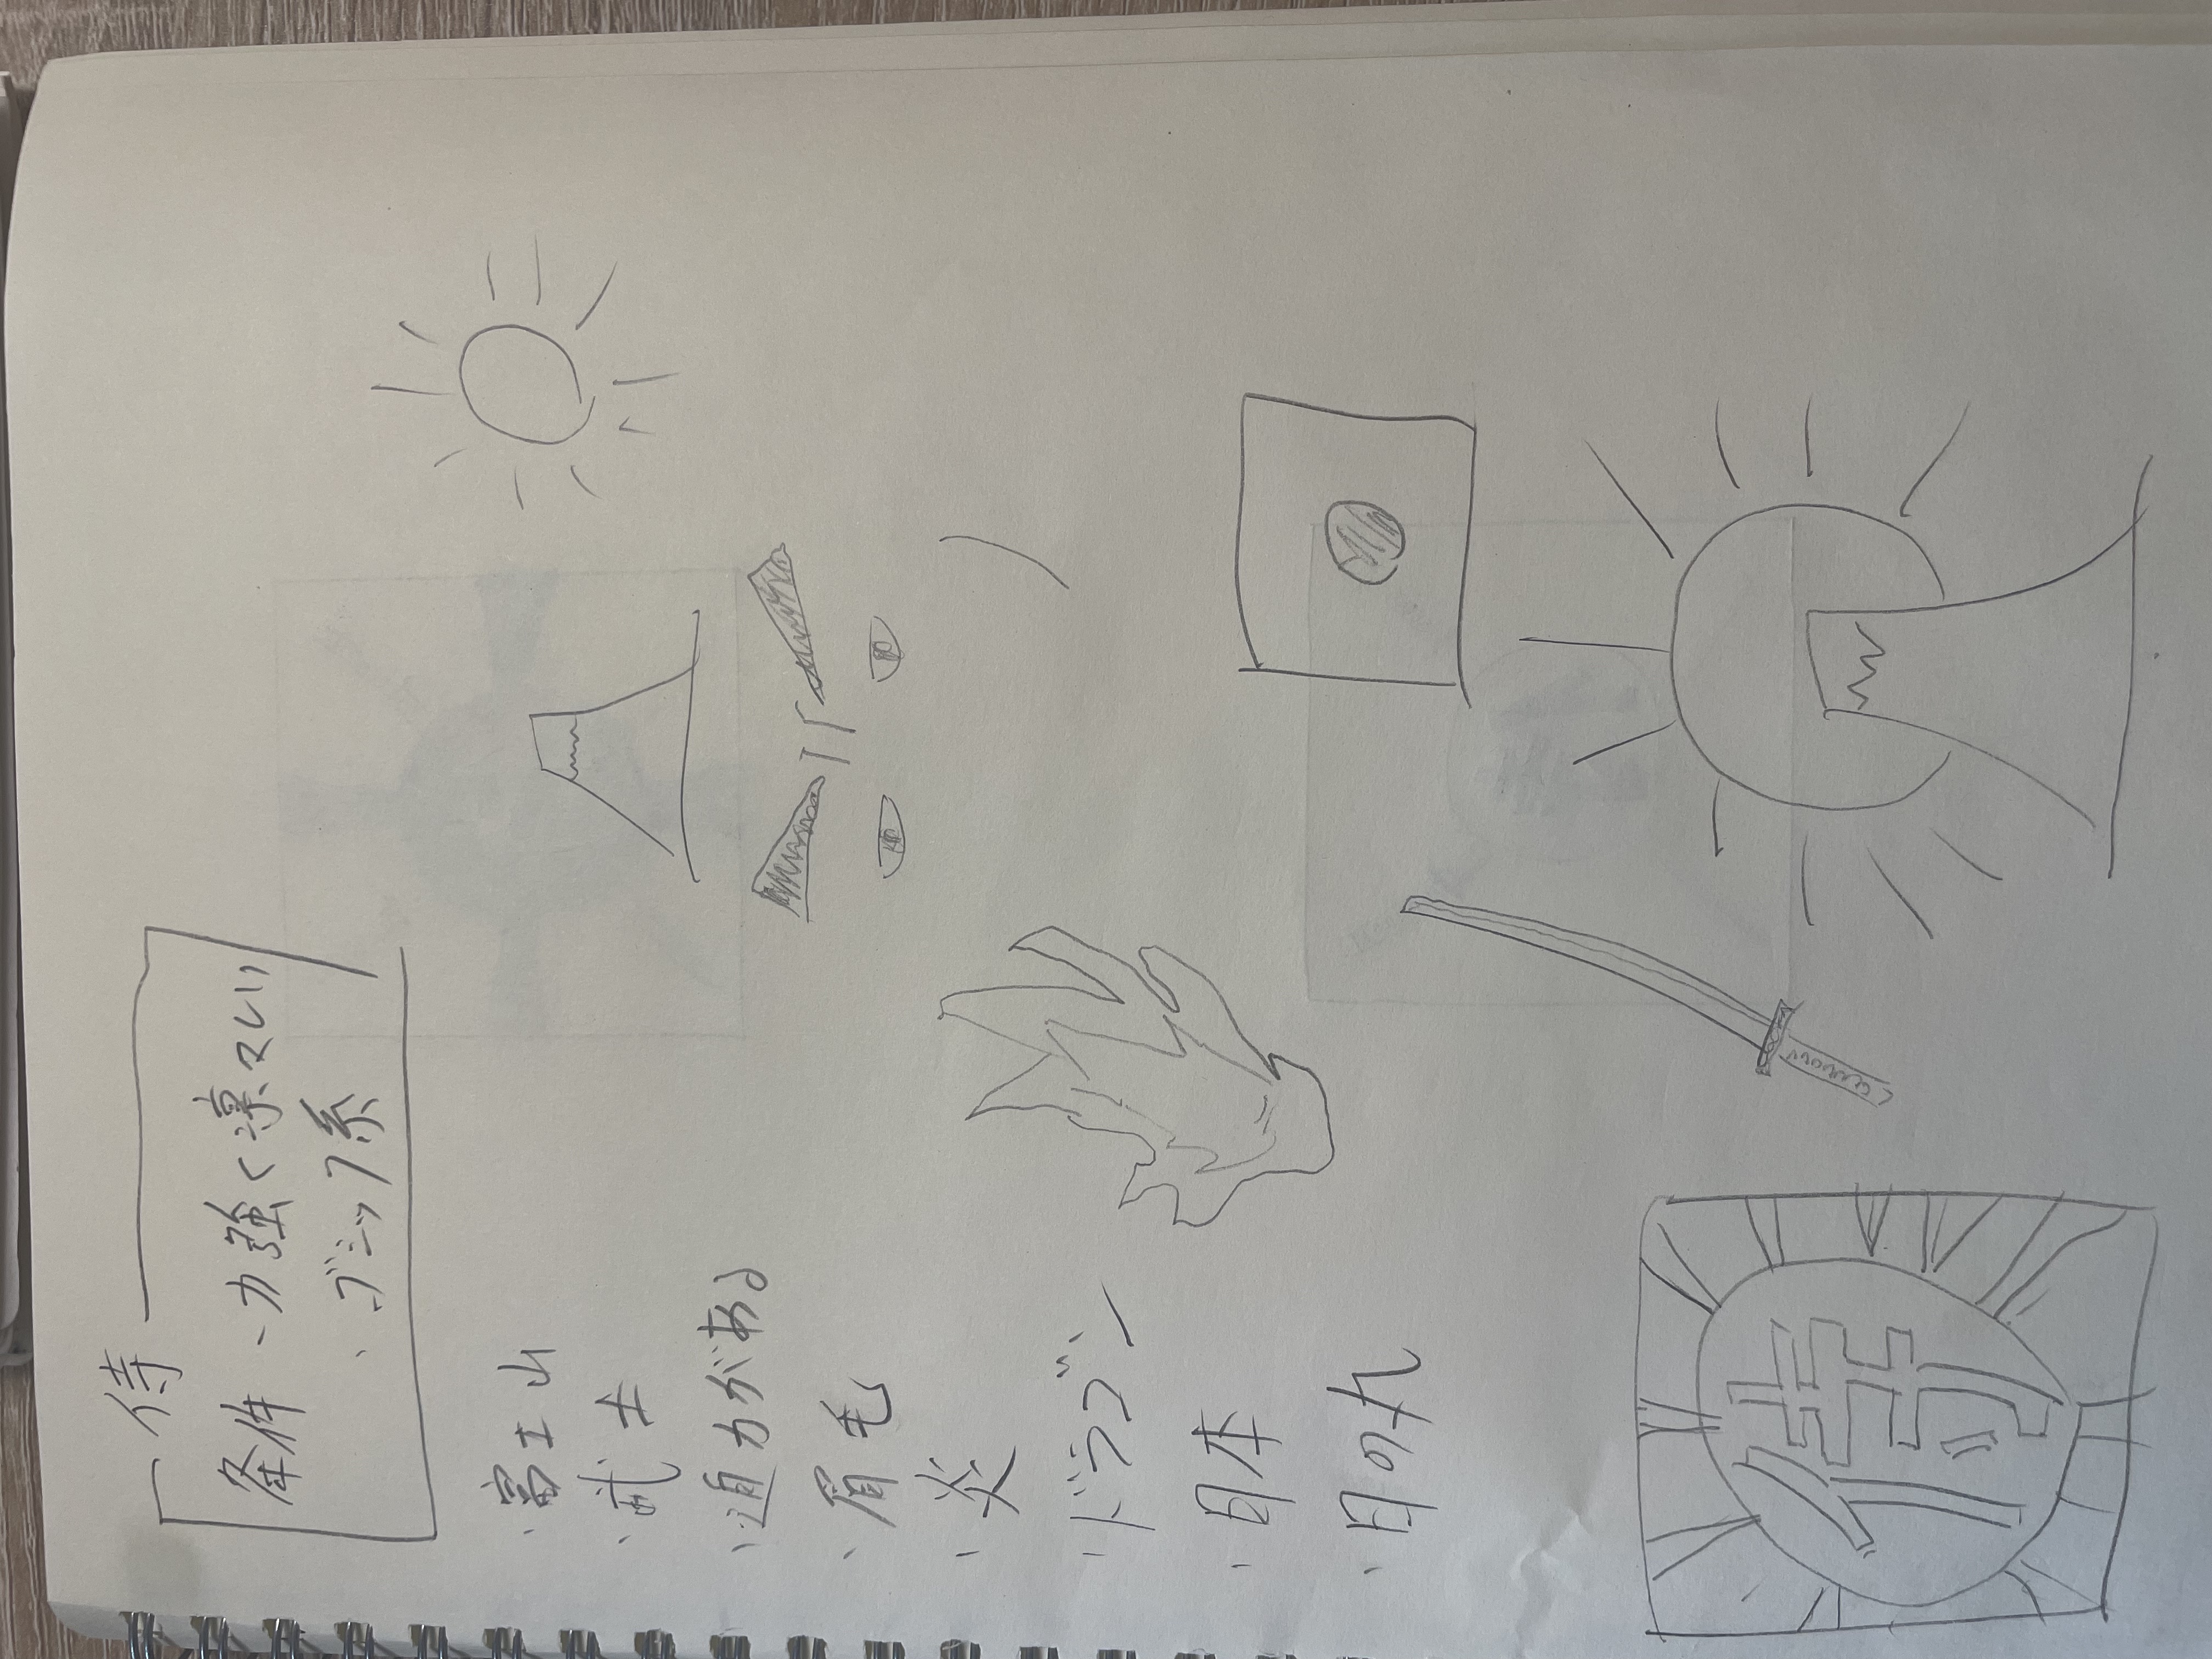 侍
条件 ・力強く凛々しい
・ゴシック系
・富士山
・武士
・迫力がある
・眉毛
・炎
・ドラゴン
・日本
・日の丸
侍